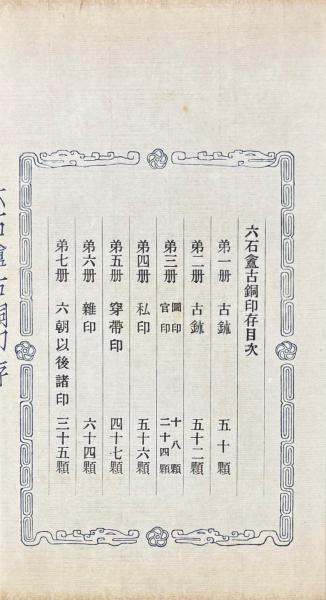 六石盦古銅印存目次
弟一册 古鉥 五十顆
弟二册 古鉥 五十二顆
弟三册 圖印 十八顆
官印 二十四顆
弟四册 私印 五十六顆
弟五册 穿帶印 四十七顆
弟六册 雜印 六十四顆
弟七册 六朝以後諸印 三十五顆
六石盦古銅印存